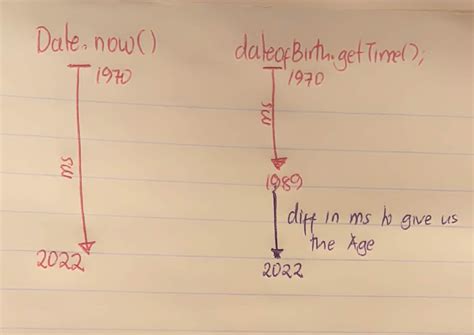 Date.now()
1970
ms
2022
dateofBirth.getTime();
1970
ms
1989
diff in ms to give us
the Age
2022